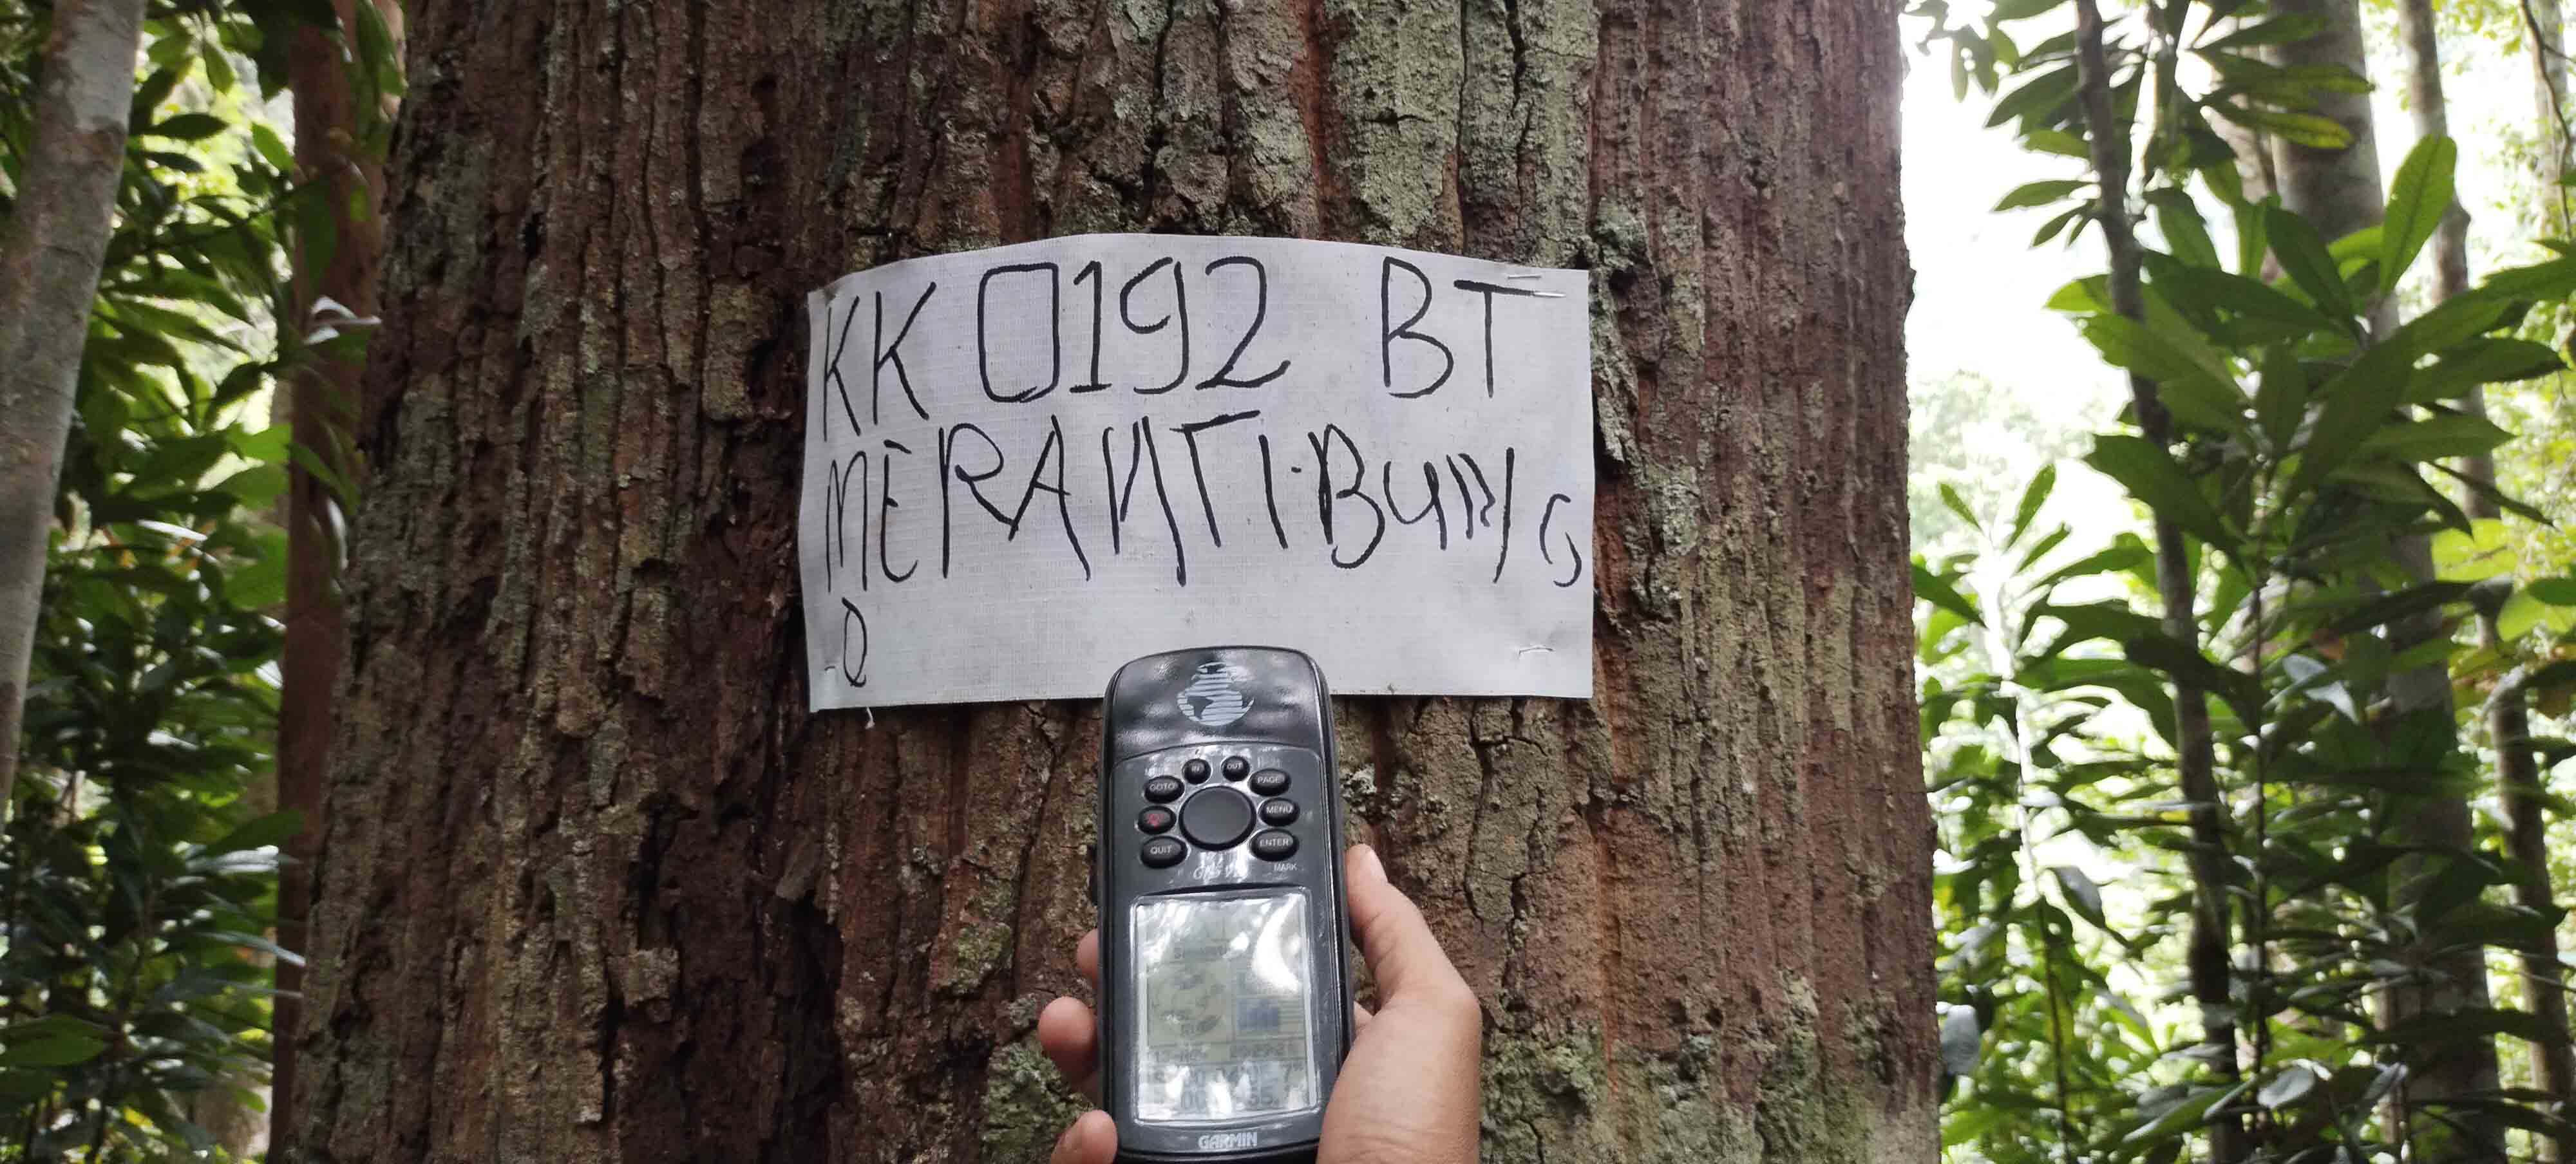 KK 0192 BT
MERANTI·BUNG
-O
IN OUT
GOTO PAGE
MENU
QUIT ENTER
MARK
GARMIN